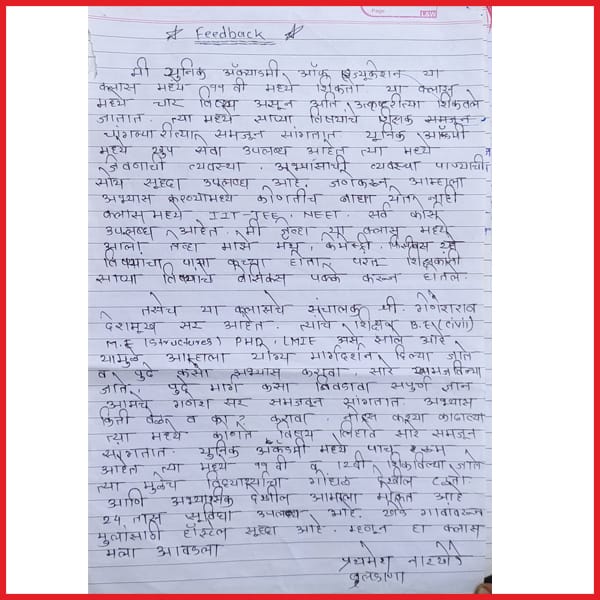 Feedback
मी युनिक अ‍ॅकॅडमी ऑफ एज्यूकेशन या
क्लास मध्ये ११ वी मध्ये शिकतो या क्लास
मध्ये चार विषय असून अति उत्कृष्टरीत्या शिकवले
जातात. त्या मध्ये सर्व्या विषयाचे शिक्षक समजून
चांगल्या रीत्या समजून सांगतात युनिक अ‍ॅकॅडमी
मध्ये सेवा उपलब्ध आहेत त्या मध्ये
जेवणाची व्यवस्था. अभ्यासाची व्यवस्था पाण्याची
सोय सूद्धा उपलब्ध आहे. जेणेकरून आम्हाला
अभ्यास करण्यामध्ये कोणतीच बाधा येत नाही
क्लास मध्ये IIT-JEE, NEET. सर्व कोर्स
उपलब्ध आहेत. मी जेव्हा या क्लास मध्ये
आलो तेव्हा माझे मॅथ, केमेस्ट्री, फिजिक्स
विषयाचा पाया कच्चा होता परंतु शिक्षकांनी
सर्व्या विषयाचे बेसिक्स पक्के करून घेतले.
तसेच या क्लासचे संचालक श्री. गणेशराव
देशमूख सर आहेत. त्यांचे शिक्षण B.E (civil)
M.E (structures) PHD, LMIE असे झाले आहे
यामुळे आम्हाला योग्य मार्गदर्शन दिल्या जाते
व पुढे कसा अभ्यास करावा. सारे समजविल्या
जाते. पुढे मार्ग कसा निवडावा संपुर्ण ज्ञान
आमचे गणेश सर समजवून सांगतात. अभ्यास
किती वेळ व का? करावा. नोट्स कश्या काढाव्या
त्या मध्ये कोणते विषय लिहावे सारे समजून
सांगतात. युनिक अ‍ॅकॅडमी मध्ये पाच रूम
आहेत त्या मध्ये ११ वी व १२वी शिकविल्या जाते
त्या मुळेच विद्यार्थ्यांचा गोंधळ देखील टळतो
आणि अभ्यासिका देखील आम्हाला मूक्त आहे
24 तास सूविधा उपलब्ध आहे. गावावरून
मुलांसाठी हॉस्टेल सूद्धा आहे. म्हणून हा क्लास
मला आवडला
प्रथमेश नारखेडे
बुलडाणा